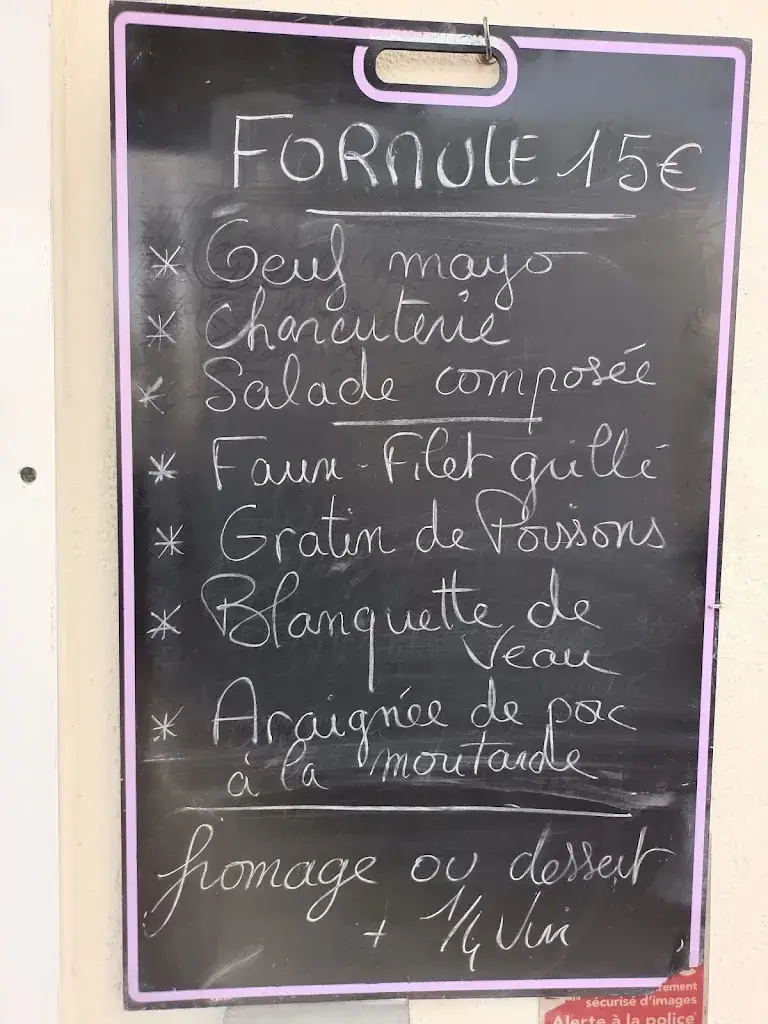 FORMULE 15€
* Oeuf mayo
* Charcuterie
* Salade composée
* Faux-Filet grillé
* Gratin de Poissons
* Blanquette de
Veau
* Araignée de porc
à la moutarde
fromage ou dessert
+ 1/4 Vin
sécurisé d'images
Alerte à la police